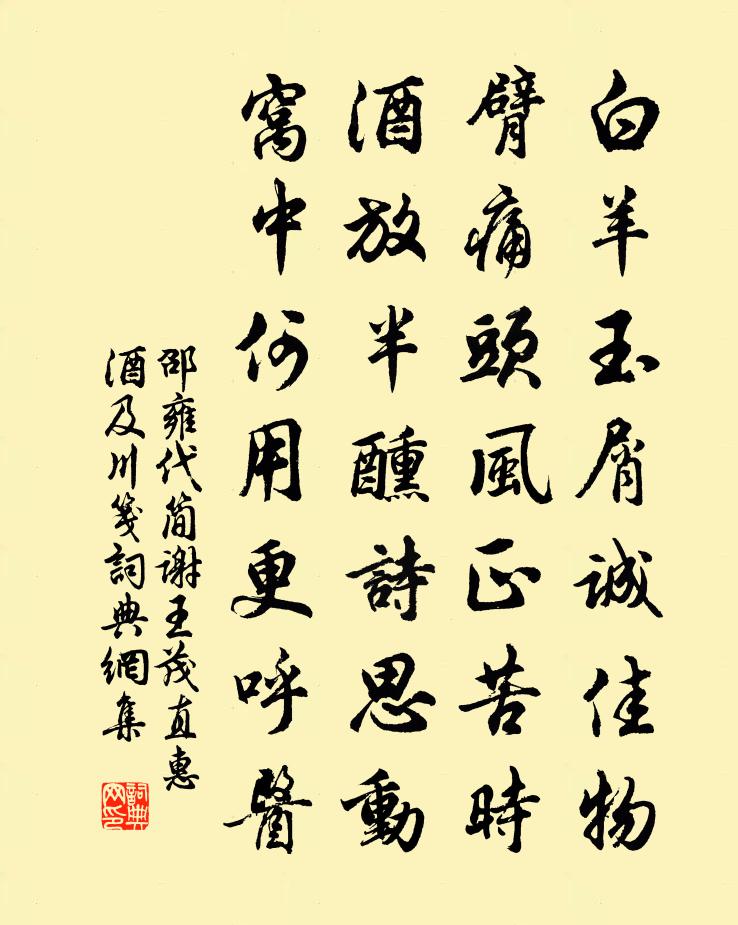 白羊玉屑誠佳物
臂痛頭風正苦時
酒放半醺詩思動
窩中何用更呼醫
邵雍代簡謝王茂直惠
酒及川箋詞典網集
詞典网印